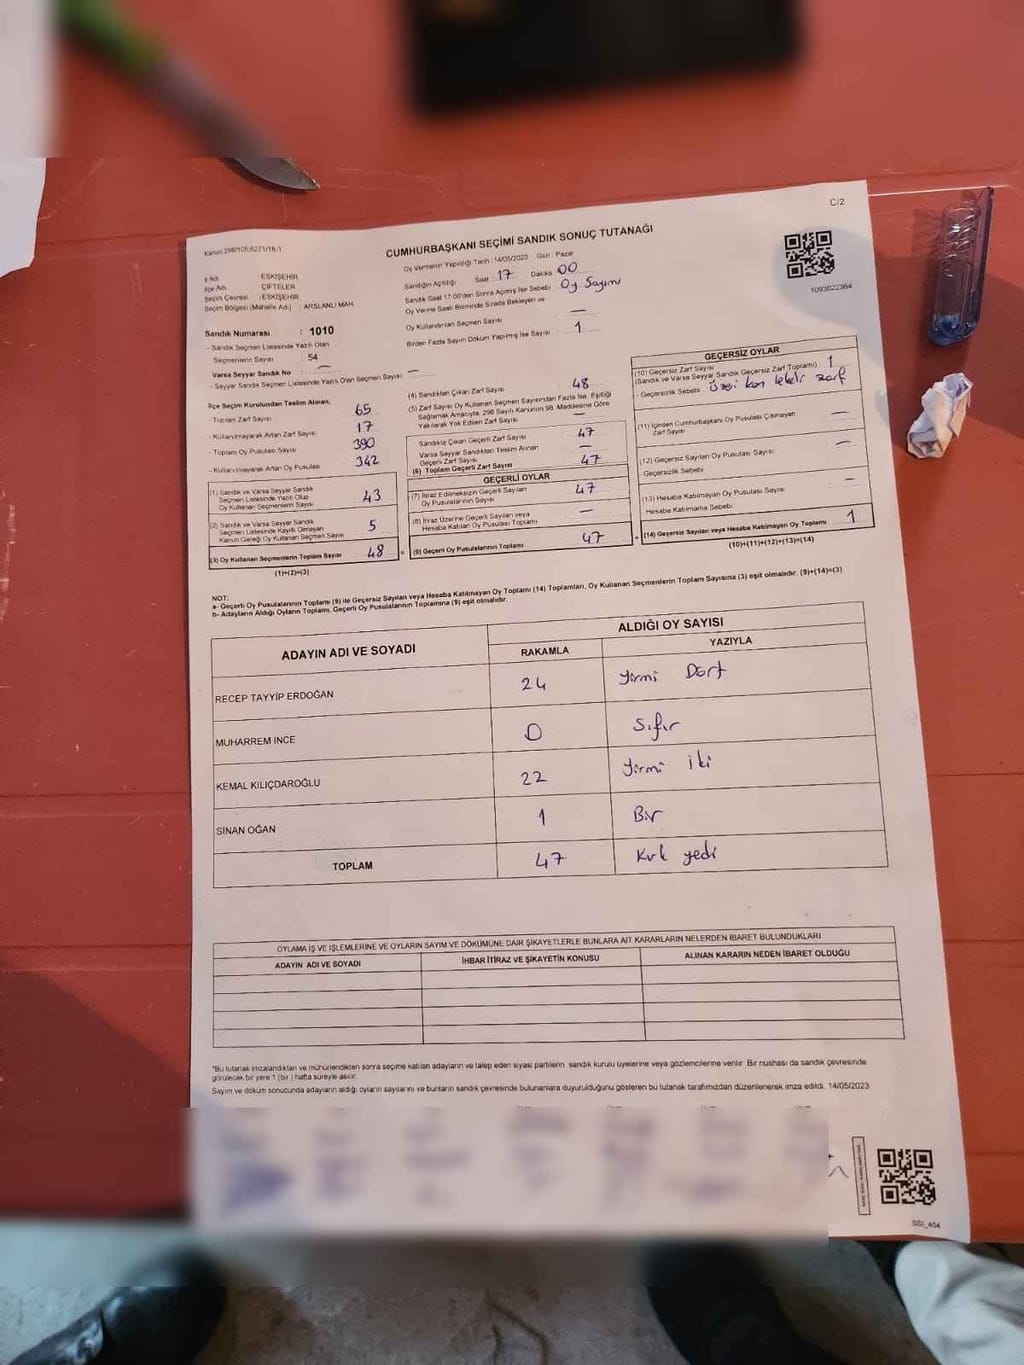 C/2
Kanun 298/105;6271/18-1
CUMHURBAŞKANI SEÇİMİ SANDIK SONUÇ TUTANAĞI
İl Adı : ESKİŞEHİR
İlçe Adı : ÇİFTELER
Seçim Çevresi : ESKİŞEHİR
Seçim Bölgesi (Mahalle Adı) : ARSLANLI MAH.
Sandık Numarası : 1010
- Sandık Seçmen Listesinde Yazılı Olan
Seçmenlerin Sayısı : 54
Varsa Seyyar Sandık No —
- Seyyar Sandık Seçmen Listesinde Yazılı Olan Seçmen Sayısı —
Oy Vermenin Yapıldığı Tarih : 14/05/2023 Gün : Pazar
Sandığın Açıldığı Saat : 17 Dakika 00
Sandık Saat 17:00'den Sonra Açılmış İse Sebebi Oy Sayımı
Oy Verme Saati Bitiminde Sırada Bekleyen ve
Oy Kullandırılan Seçmen Sayısı —
Birden Fazla Sayım Döküm Yapılmış İse Sayısı : 1
1093622364
İlçe Seçim Kurulundan Teslim Alınan;
- Toplam Zarf Sayısı 65
- Kullanılmayarak Artan Zarf Sayısı 17
- Toplam Oy Pusulası Sayısı 390
- Kullanılmayarak Artan Oy Pusulası 342
(1) Sandık ve Varsa Seyyar Sandık
Seçmen Listesinde Yazılı Olup
Oy Kullanan Seçmenlerin Sayısı 43
(2) Sandık ve Varsa Seyyar Sandık
Seçmen Listesinde Kayıtlı Olmayan
Kanun Gereği Oy Kullanan Seçmen Sayısı 5
(3) Oy Kullanan Seçmenlerin Toplam Sayısı 48
(1)+(2)=(3)
(4) Sandıktan Çıkan Zarf Sayısı 48
(5) Zarf Sayısı Oy Kullanan Seçmen Sayısından Fazla İse, Eşitliği
Sağlamak Amacıyla; 298 Sayılı Kanunun 98. Maddesine Göre
Yakılarak Yok Edilen Zarf Sayısı —
Sandıkta Çıkan Geçerli Zarf Sayısı 47
Varsa Seyyar Sandıktan Teslim Alınan
Geçerli Zarf Sayısı —
(6) Toplam Geçerli Zarf Sayısı 47
GEÇERLİ OYLAR
(7) İtiraz Edilmeksizin Geçerli Sayılan
Oy Pusulalarının Sayısı 47
(8) İtiraz Üzerine Geçerli Sayılan veya
Hesaba Katılan Oy Pusulası Toplamı —
(9) Geçerli Oy Pusulalarının Toplamı 47
GEÇERSİZ OYLAR
(10) Geçersiz Zarf Sayısı
(Sandık ve Varsa Seyyar Sandık Geçersiz Zarf Toplamı) 1
- Geçersizlik Sebebi: Üzeri kan lekeli zarf
(11) İçinden Cumhurbaşkanı Oy Pusulası Çıkmayan
Zarf Sayısı —
(12) Geçersiz Sayılan Oy Pusulası Sayısı —
Geçersizlik Sebebi
(13) Hesaba Katılmayan Oy Pusulası Sayısı —
Hesaba Katılmama Sebebi
(14) Geçersiz Sayılan veya Hesaba Katılmayan Oy Toplamı 1
(10)+(11)+(12)+(13)=(14)
NOT:
a- Geçerli Oy Pusulalarının Toplamı (9) ile Geçersiz Sayılan veya Hesaba Katılmayan Oy Toplamı (14) Toplamları, Oy Kullanan Seçmenlerin Toplam Sayısına (3) eşit olmalıdır. (9)+(14)=(3)
b- Adayların Aldığı Oyların Toplamı, Geçerli Oy Pusulalarının Toplamına (9) eşit olmalıdır.
ADAYIN ADI VE SOYADI ALDIĞI OY SAYISI
RAKAMLA YAZIYLA
RECEP TAYYİP ERDOĞAN 24 Yirmi Dört
MUHARREM İNCE 0 Sıfır
KEMAL KILIÇDAROĞLU 22 Yirmi iki
SİNAN OĞAN 1 Bir
TOPLAM 47 Kırk yedi
OYLAMA İŞ VE İŞLEMLERİNE VE OYLARIN SAYIM VE DÖKÜMÜNE DAİR ŞİKAYETLERLE BUNLARA AİT KARARLARIN NELERDEN İBARET BULUNDUKLARI
ADAYIN ADI VE SOYADI İHBAR İTİRAZ VE ŞİKAYETİN KONUSU ALINAN KARARIN NEDEN İBARET OLDUĞU
*Bu tutanak imzalandıktan ve mühürlendikten sonra seçime katılan adayların ve talep eden siyasi partilerin sandık kurulu üyelerine veya gözlemcilerine verilir. Bir nüshası da sandık çevresinde
görülecek bir yere 1 (bir ) hafta süreyle asılır.
Sayım ve döküm sonucunda adayların aldığı oyların sayılarını ve bunların sandık çevresinde bulunanlara duyurulduğunu gösteren bu tutanak tarafımızdan düzenlenerek imza edildi. 14/05/2023
SSI_404